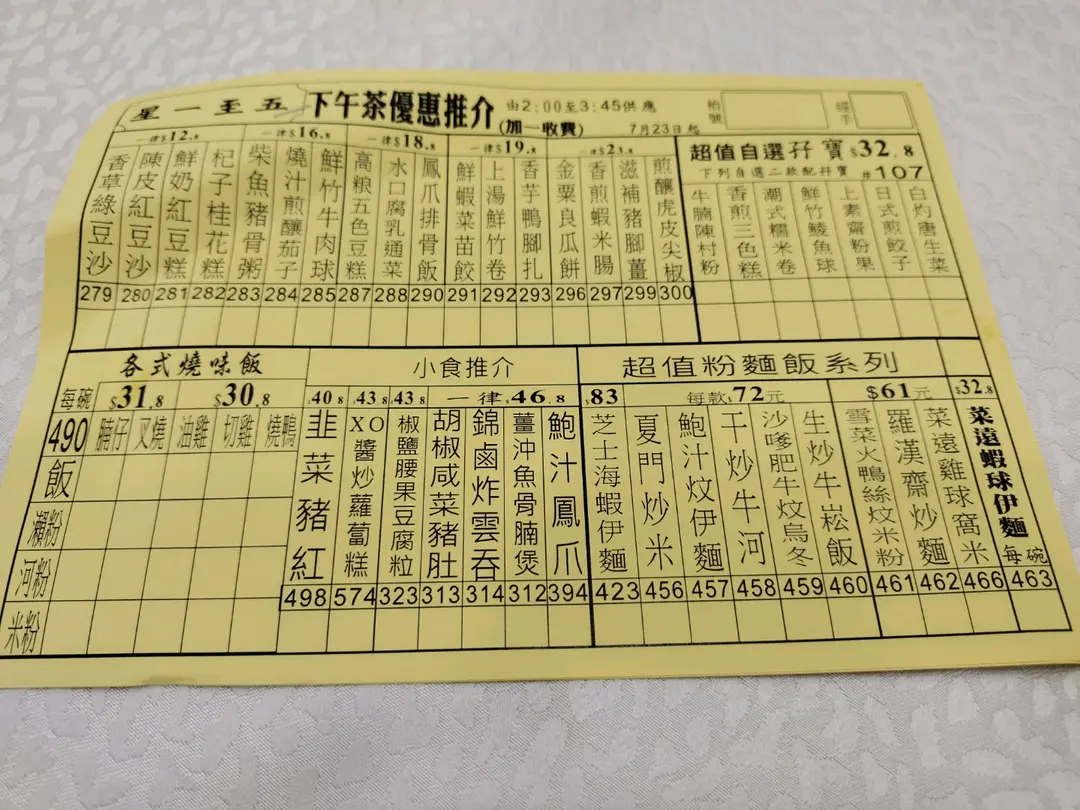 星一至五 下午茶優惠推介 由2:00至3:45供應
(加一收費) 7月23日起
枱號
一律$12.8
香草綠豆沙 279
陳皮紅豆沙 280
鮮奶紅豆糕 281
杞子桂花糕 282
一律$16.8
柴魚豬骨粥 283
燒汁煎釀茄子 284
鮮竹牛肉球 285
一律$18.8
高粮五色豆糕 287
水口腐乳通菜 288
鳳爪排骨飯 290
一律$19.8
鮮蝦菜苗餃 291
上湯鮮竹卷 292
香芋鴨腳扎 293
金粟良瓜餅 296
香煎蝦米腸 297
滋補豬腳薑 299
煎釀虎皮尖椒 300
超值自選孖寶 $32.8
下列自選二款配孖寶 #107
牛腩陳村粉
香煎三色糕
潮式糯米卷
鮮竹鯪魚球
上素齋粉果
日式煎餃子
白灼唐生菜
各式燒味飯
每碗 $31.8 $30.8
490 腩仔 叉燒 油雞 切雞 燒鴨
飯
瀨粉
河粉
米粉
小食推介
$40.8
韭菜豬紅 498
$43.8
XO醬炒蘿蔔糕 574
$43.8
椒鹽腰果豆腐粒 323
一律$46.8
胡椒咸菜豬肚 313
錦鹵炸雲吞 314
薑沖魚骨腩煲 312
鮑汁鳳爪 394
超值粉麵飯系列
$83
芝士海蝦伊麵 423
每款$72元
夏門炒米 456
鮑汁炆伊麵 457
干炒牛河 458
沙嗲肥牛炆烏冬 459
生炒牛崧飯 460
$61元
雪菜火鴨絲炆米粉 461
羅漢齋炒麵 462
菜遠雞球窩米 466
$32.8
菜遠蝦球伊麵 每碗 463